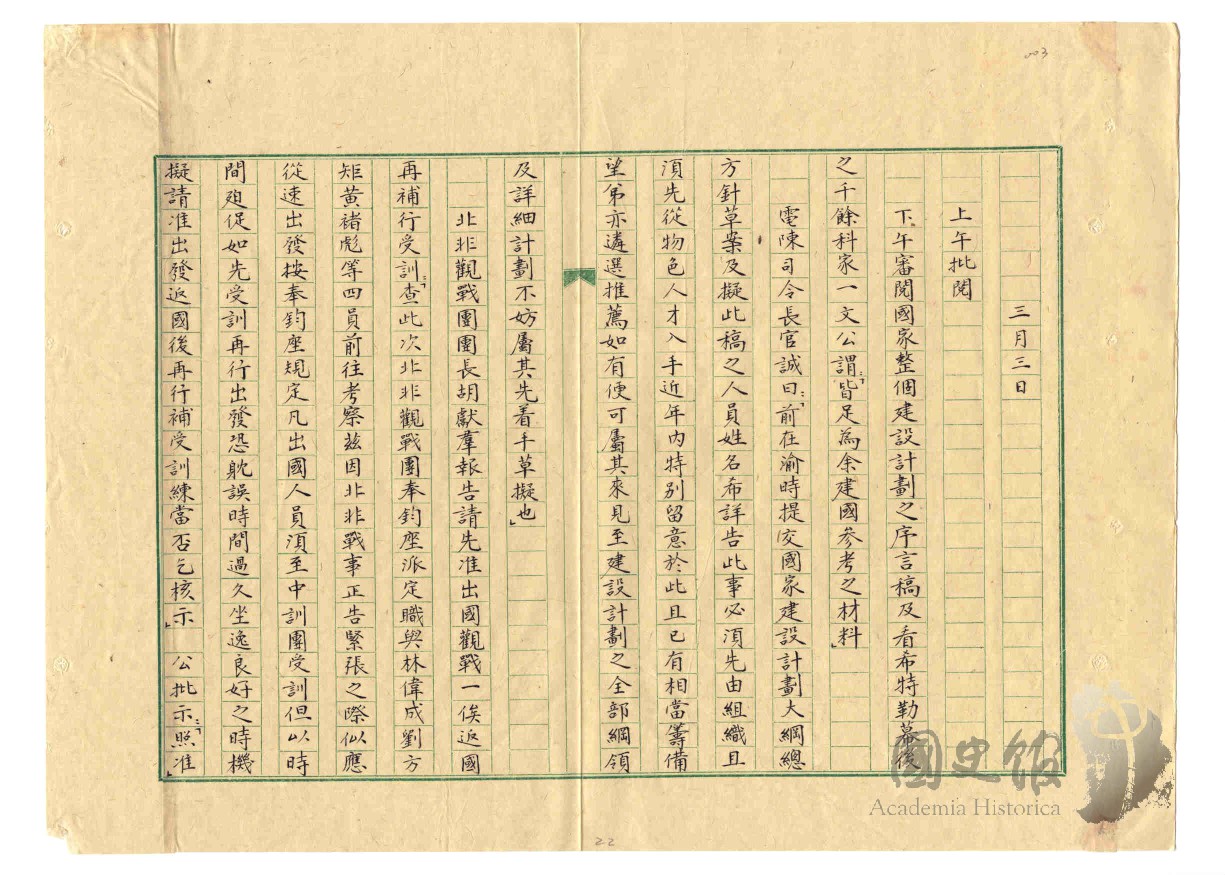 003
三月三日
上午批閱
下午審閱國家整個建設計劃之序言稿及看希特勒幕後
之千餘科家一文公謂：「皆足為余建國參考之材料」
電陳司令長官誠曰：「前在渝時提交國家建設計劃大綱總
方針草案及擬此稿之人員姓名希詳告此事必須先由組織且
須先從物色人才入手近年內特別留意於此且已有相當籌備
望弟亦遴選推薦如有便可屬其來見至建設計劃之全部綱領
及詳細計劃不妨屬其先着手草擬也」
北非觀戰團團長胡獻羣報告請先准出國觀戰一俟返國
再補行受訓：「查此次北非觀戰團奉鈞座派定職與林偉成劉方
矩黃褚彪等四員前往考察茲因北非戰事正告緊張之際似應
從速出發按奉鈞座規定凡出國人員須至中訓團受訓但以時
間廹促如先受訓再行出發恐躭誤時間過久坐逸良好之時機
擬請准出發返國後再行補受訓練當否乞核示」　公批示：「照准」
22
國史館
Academia Historica